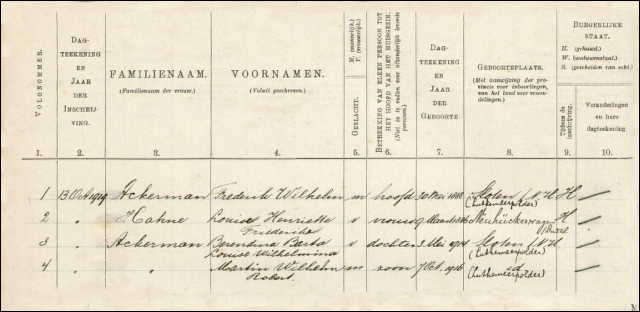 VOLGNOMMER.
DAG-
TEEKENING
EN
JAAR
DER
INSCHRIJ-
VING.
FAMILIENAAM.
(Familienaam der vrouw.)
VOORNAMEN.
(Voluit geschreven.)
M. (mannelijk.)
V. (vrouwelijk.)
GESLACHT.
BETREKKING VAN ELKEN PERSOON TOT
HET HOOFD VAN HET HUISGEZIN.
(Niet in te vullen voor afzonderlijk levende
personen.)
DAG-
TEEKENING
EN
JAAR
DER
GEBOORTE
GEBOORTEPLAATS.
(Met aanwijzing der pro-
vincie voor inboorlingen,
van het land voor vreem-
delingen.)
BURGERLIJKE
STAAT.
H. (gehuwd.)
W. (weduwenstaat.)
S. (gescheiden van echt.)
Tijdens de
inschrijving.
Veranderingen
en hare
dagteekening.
1. 2. 3. 4. 5. 6. 7. 8. 9. 10.
1 13 Oct 1919 Ackerman Frederik Wilhelm m hoofd 30 Mei 1888 Sloten (N.H. H
(Luthemeerpolder)
2 " Hahne Louise Henriette v vrouw Maart
Friederike
3 " Ackerman Berendina Berta v dochter Mei 1914 Sloten (N.H.
Louise Wilhelmina (Luthemeerpolder)
4 " " Martin Wilhelm m zoon 7 Oct. 1916 id
Robert. (Luthemeerpolder)